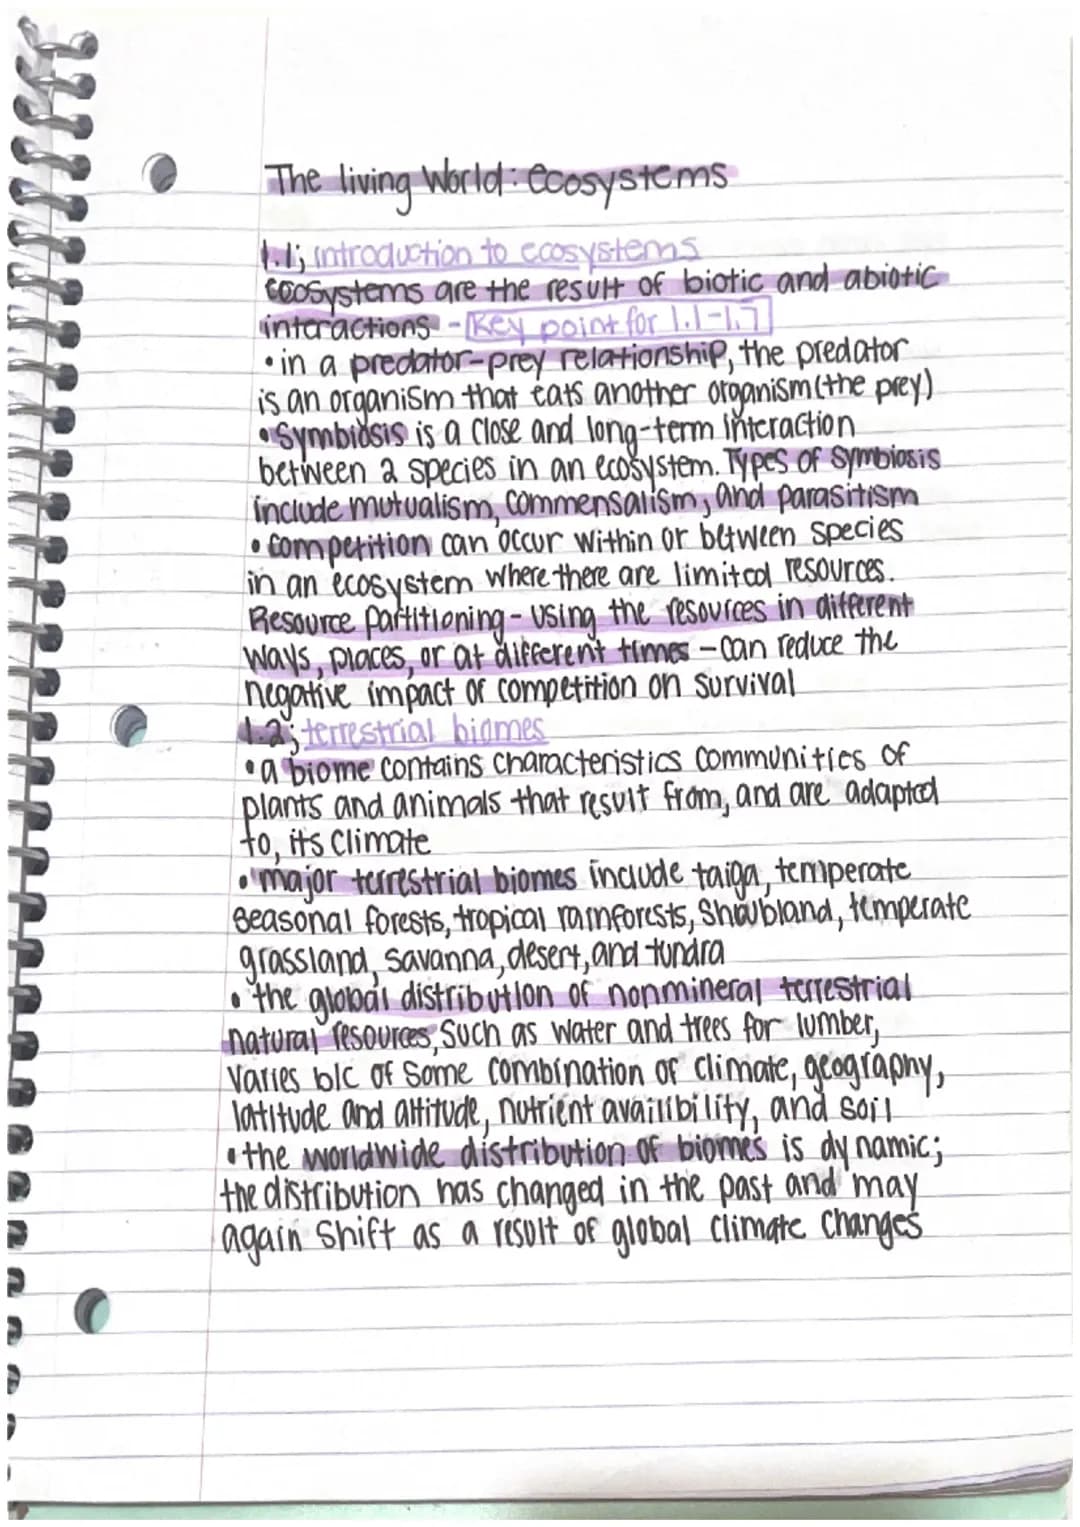 The living World: Ecosystems
1.1; introduction to ecosystems
Ecosystems are the result of biotic and abiotic
interactions - Key point for 1.1-1.7
• in a predator-prey relationship, the predator
is an organism that eats another organism (the prey)
• Symbiosis is a close and long-term interaction
between 2 species in an ecosystem. Types of symbiosis
include mutualism, commensalism, and parasitism
• Competition can occur within or between species
in an ecosystem where there are limited resources.
Resource Partitioning - using the resources in different
ways, places, or at different times - can reduce the
negative impact of competition on survival
1.2; terrestrial biomes
• a biome contains characteristics communities of
plants and animals that result from, and are adapted
to, its climate
• major terrestrial biomes include taiga, temperate
seasonal forests, tropical rainforests, Shrubland, temperate
grassland, savanna, desert, and tundra
• the global distribution of nonmineral terrestrial
natural resources, such as water and trees for lumber,
varies b/c of some combination of climate, geography,
latitude and altitude, nutrient availibility, and soil
• the worldwide distribution of biomes is dynamic;
the distribution has changed in the past and may
again shift as a result of global climate changes